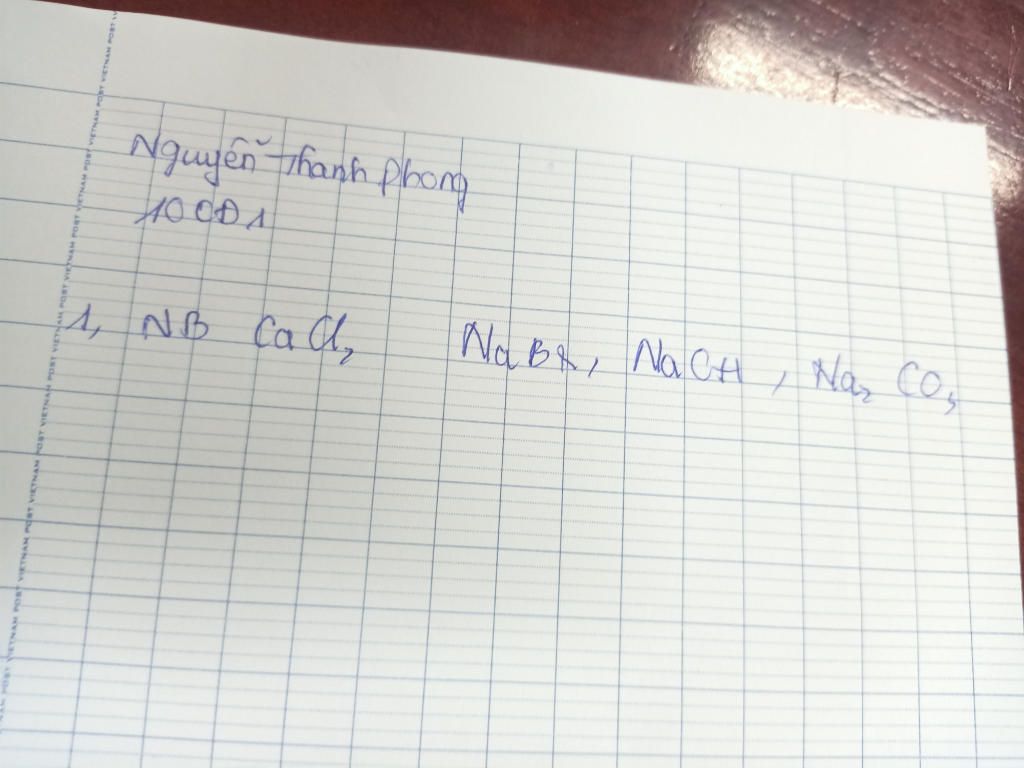 Nguyễn Thanh Phong
10CĐ1
1, NB CaCl₂ NaBr, NaOH, Na₂CO₃
VIETNAM POST VIETNAM POST VIETNAM POST VIETNAM POST VIETNAM POST VIETNAM POST